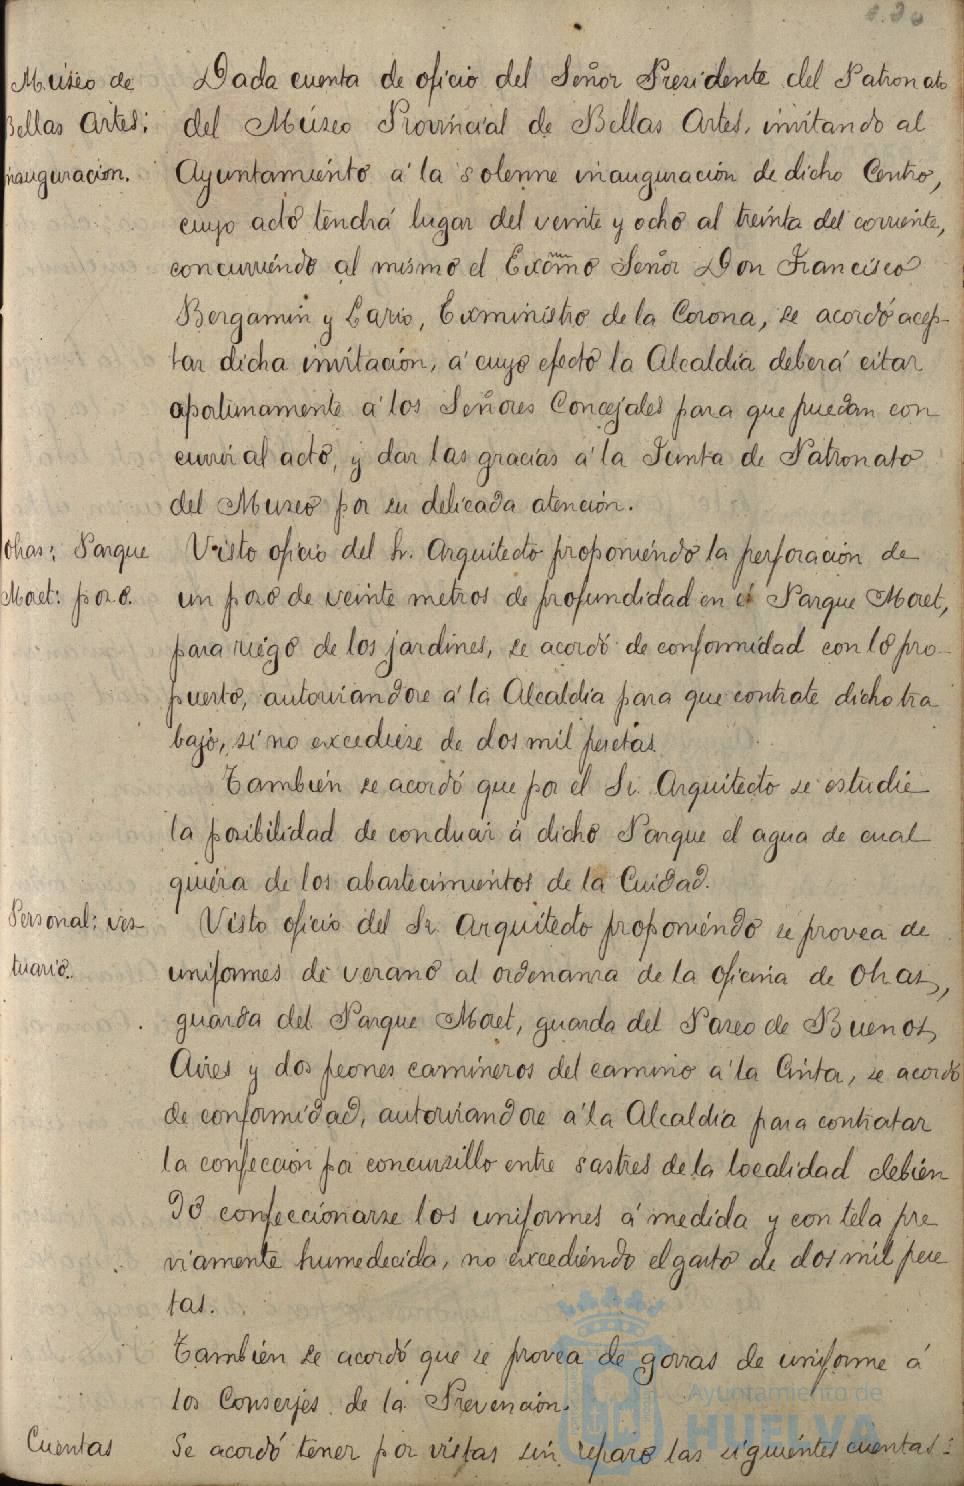 Museo de
Bellas Artes;
inauguración.
Dada cuenta de oficio del Señor Presidente del Patronato
del Múseo Provincial de Bellas Artes, invitando al
Ayuntamiento á la solenne inauguración de dicho Centro,
cuyo acto tendrá lugar del veinte y ocho al treinta del corriente,
concurriendo al mismo el Excmo Señor Don Francisco
Bergamin y Lario, Exministro de la Corona, se acordó acep-
tar dicha invitación, á cuyo efecto la Alcaldía deberá citar
oportunamente á los Señores Concejales para que puedan con
currir al acto, y dar las gracias á la Junta de Patronato
del Museo por su delicada atención.
Obras; Parque
Moret: pozo.
Visto oficio del Sr. Arquitecto proponiendo la perforación de
un pozo de veinte metros de profundidad en el Parque Moret,
para riego de los jardines, se acordó de conformidad con lo pro-
puesto, autorizandose á la Alcaldía para que contrate dicho tra
bajo, si no excediese de dos mil pesetas.
También se acordó que por el Sr. Arquitecto se estudie
la posibilidad de conducir á dicho Parque el agua de cual
quiera de los abastecimientos de la Cuidad.
Personal; ves-
tuario.
Visto oficio del Sr. Arquitecto proponiendo se provea de
uniformes de verano al ordenanza de la oficina de Obras,
guarda del Parque Moret, guarda del Paseo de Buenos
Aires y dos peones camineros del camino á la Cinta, se acordó
de conformidad, autorizandose á la Alcaldía para contratar
la confección por concursillo entre sastres de la localidad debien
do confeccionarse los uniformes á medida y con tela pre
viamente humedecida, no excediendo el gasto de dos mil pese
tas.
También se acordó que se provea de gorras de uniforme á
los Conserjes de la Prevención.
Cuentas
Se acordó tener por vistas sin reparo las siguientes cuentas:
Ayuntamiento de
HUELVA